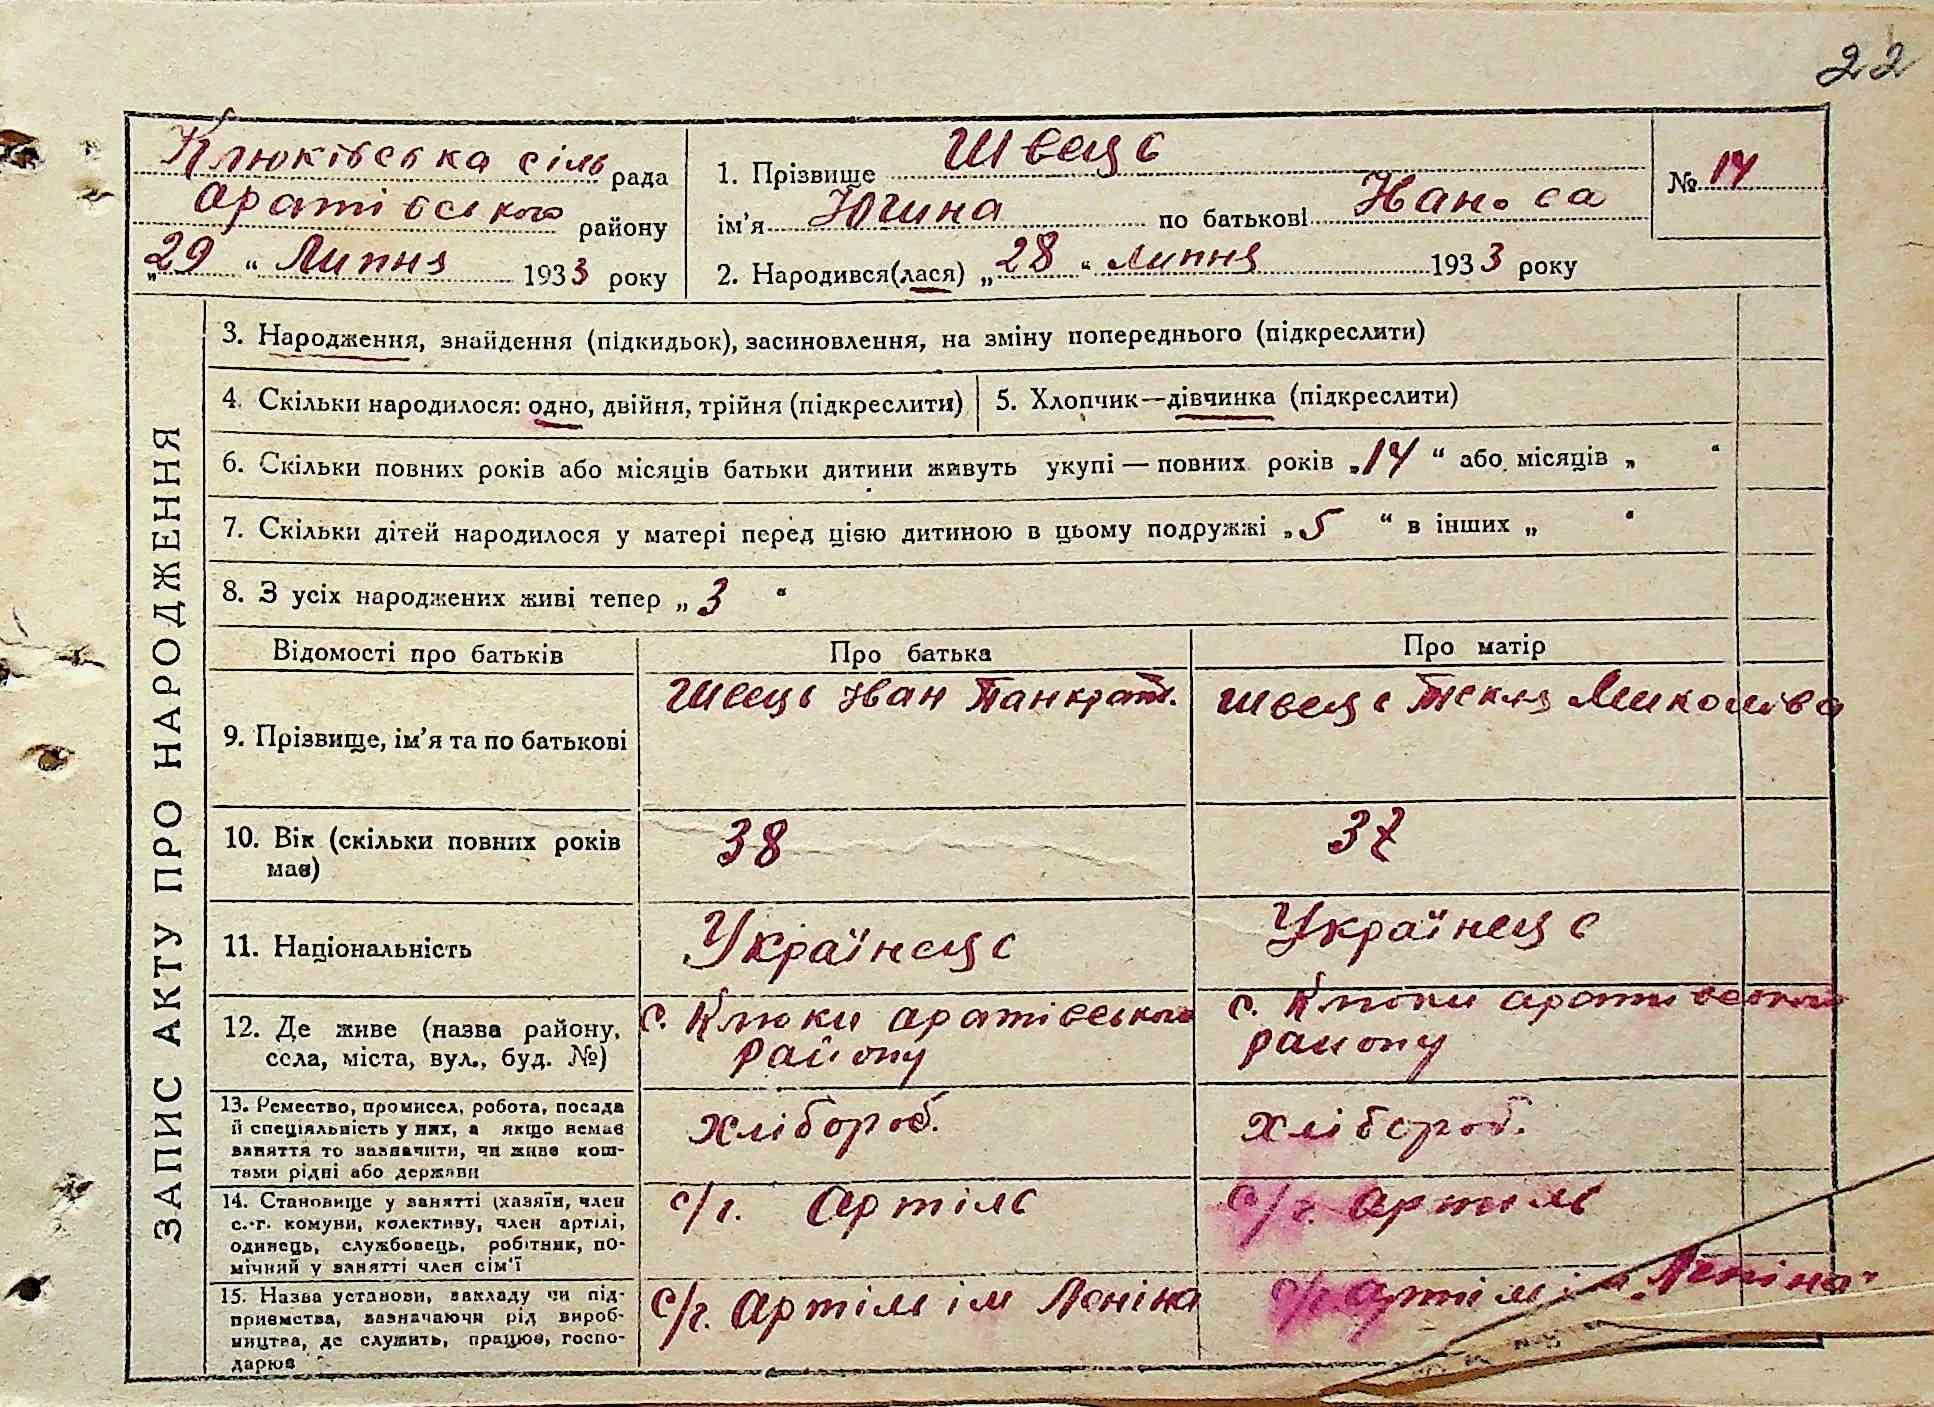 22
Клюківська сіль рада
Аратівського району
„29 “ Липня 1933 року
1. Прізвище Швець
ім’я Югина по батькові
2. Народився(лася) „28 “ липня 1933 року
№ 14
ЗАПИС АКТУ ПРО НАРОДЖЕННЯ
3. Народження, знайдення (підкидьок), засиновлення, на зміну попереднього (підкреслити)
4. Скільки народилося: одно, двійня, трійня (підкреслити)
5. Хлопчик—дівчинка (підкреслити)
6. Скільки повних років або місяців батьки дитини живуть укупі — повних років „14 “ або місяців „ “
7. Скільки дітей народилося у матері перед цією дитиною в цьому подружжі „5 “ в інших „ “
8. З усіх народжених живі тепер „ 3 “
Відомості про батьків
Про батька
Про матір
9. Прізвище, ім’я та по батькові
Швець Іван Панкрат.
Швець Текля Миколівва
10. Вік (скільки повних років
має)
38
37
11. Національність
Українець
Українець
12. Де живе (назва району,
села, міста, вул., буд. №)
с. Клюки аратівського
району
с. Клюки аратівського
району
13. Ремество, промисел, робота, посада
й спеціяльність у них, а якщо немає
заняття то зазначити, чи живе кош-
тами рідні або держави
хлібороб.
хлібороб.
14. Становище у занятті (хазяїн, член
с.-г. комуни, колективу, член артілі,
одинець, службовець, робітник, по-
мічний у занятті член сім’ї
с/г. Артіль
с/г. Артиль
15. Назва установи, закладу чи під-
приємства, зазначаючи рід вироб-
ництва, де служить, працює, госпо-
дарює
с/г. Артіль ім Леніна
с/г. Артіль ім „Леніна“